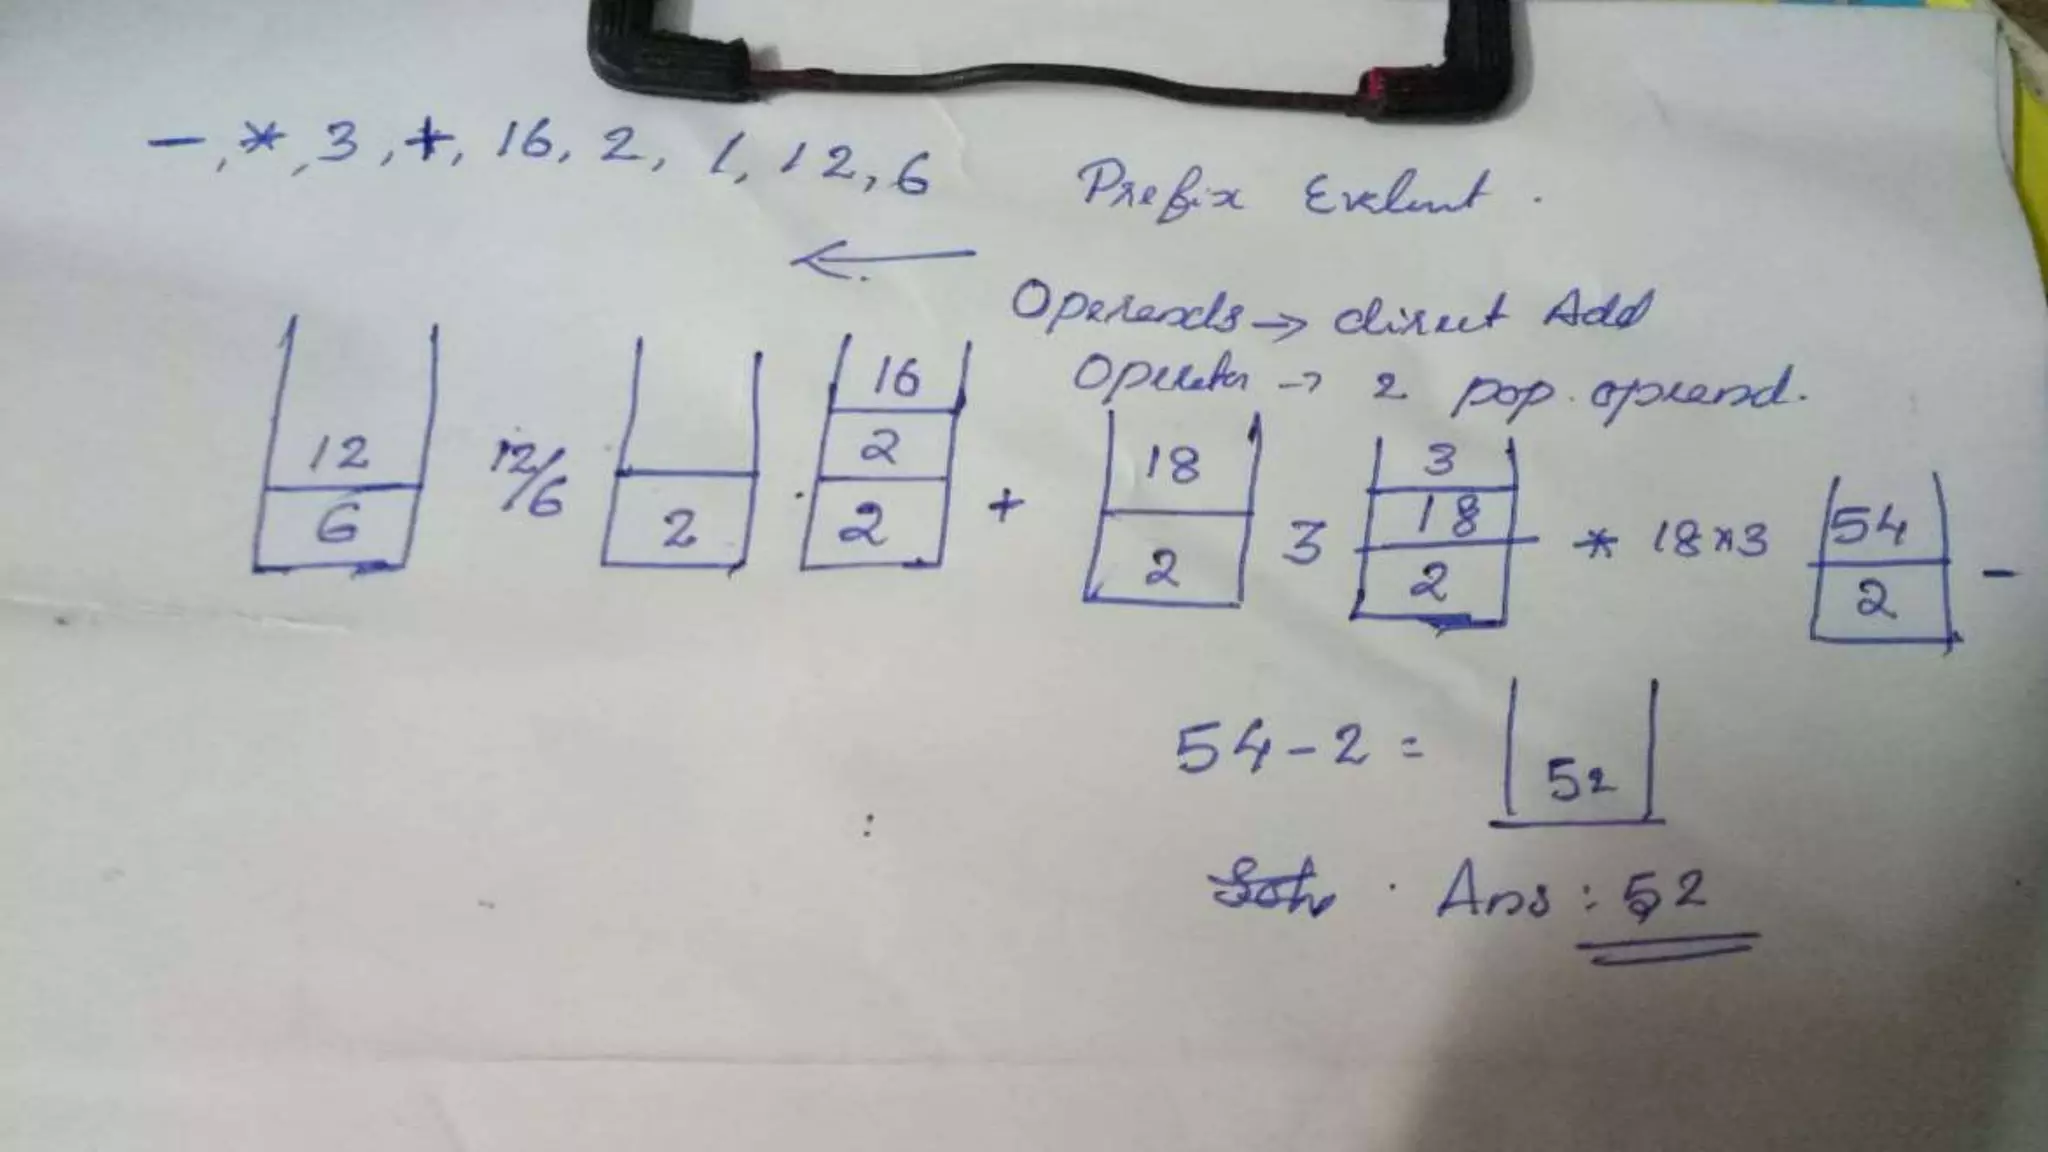 -, *, 3, +, 16, 2, /, 12, 6
Prefix Evaluat.
Operands → direct Add
Operator → 2 pop. oprend.
12
6
12/6
2
16
2
2
+
18
2
3
3
18
2
* 18*3
54
2
-
54-2=
52
Ans: 52